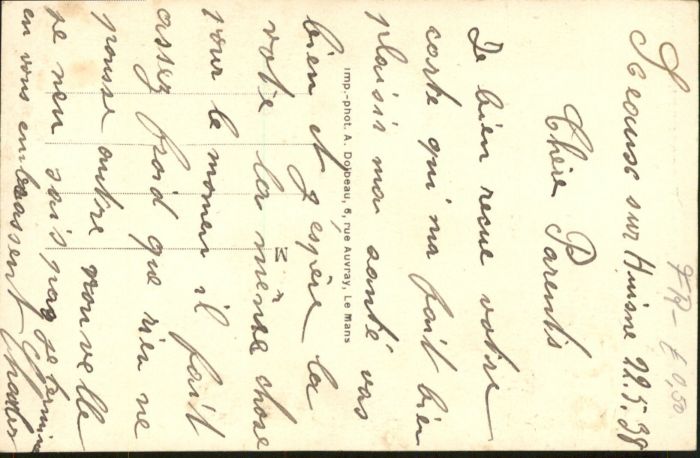 Sceaux sur Huisne 22.5.38
FR- £ 0,50
Chère Parents
Je bien recue votre
carte qui ma fait bien
plaisir ma santé vas
bien et J'espère la
votre la même chose
pour le momen il fait
assez froid que rien ne
pousse autre nouvelle
Je nen sais pas Je termine
en vous embrassent
Imp.-phot. A. Dolbeau, 6, rue Auvray, Le Mans
M